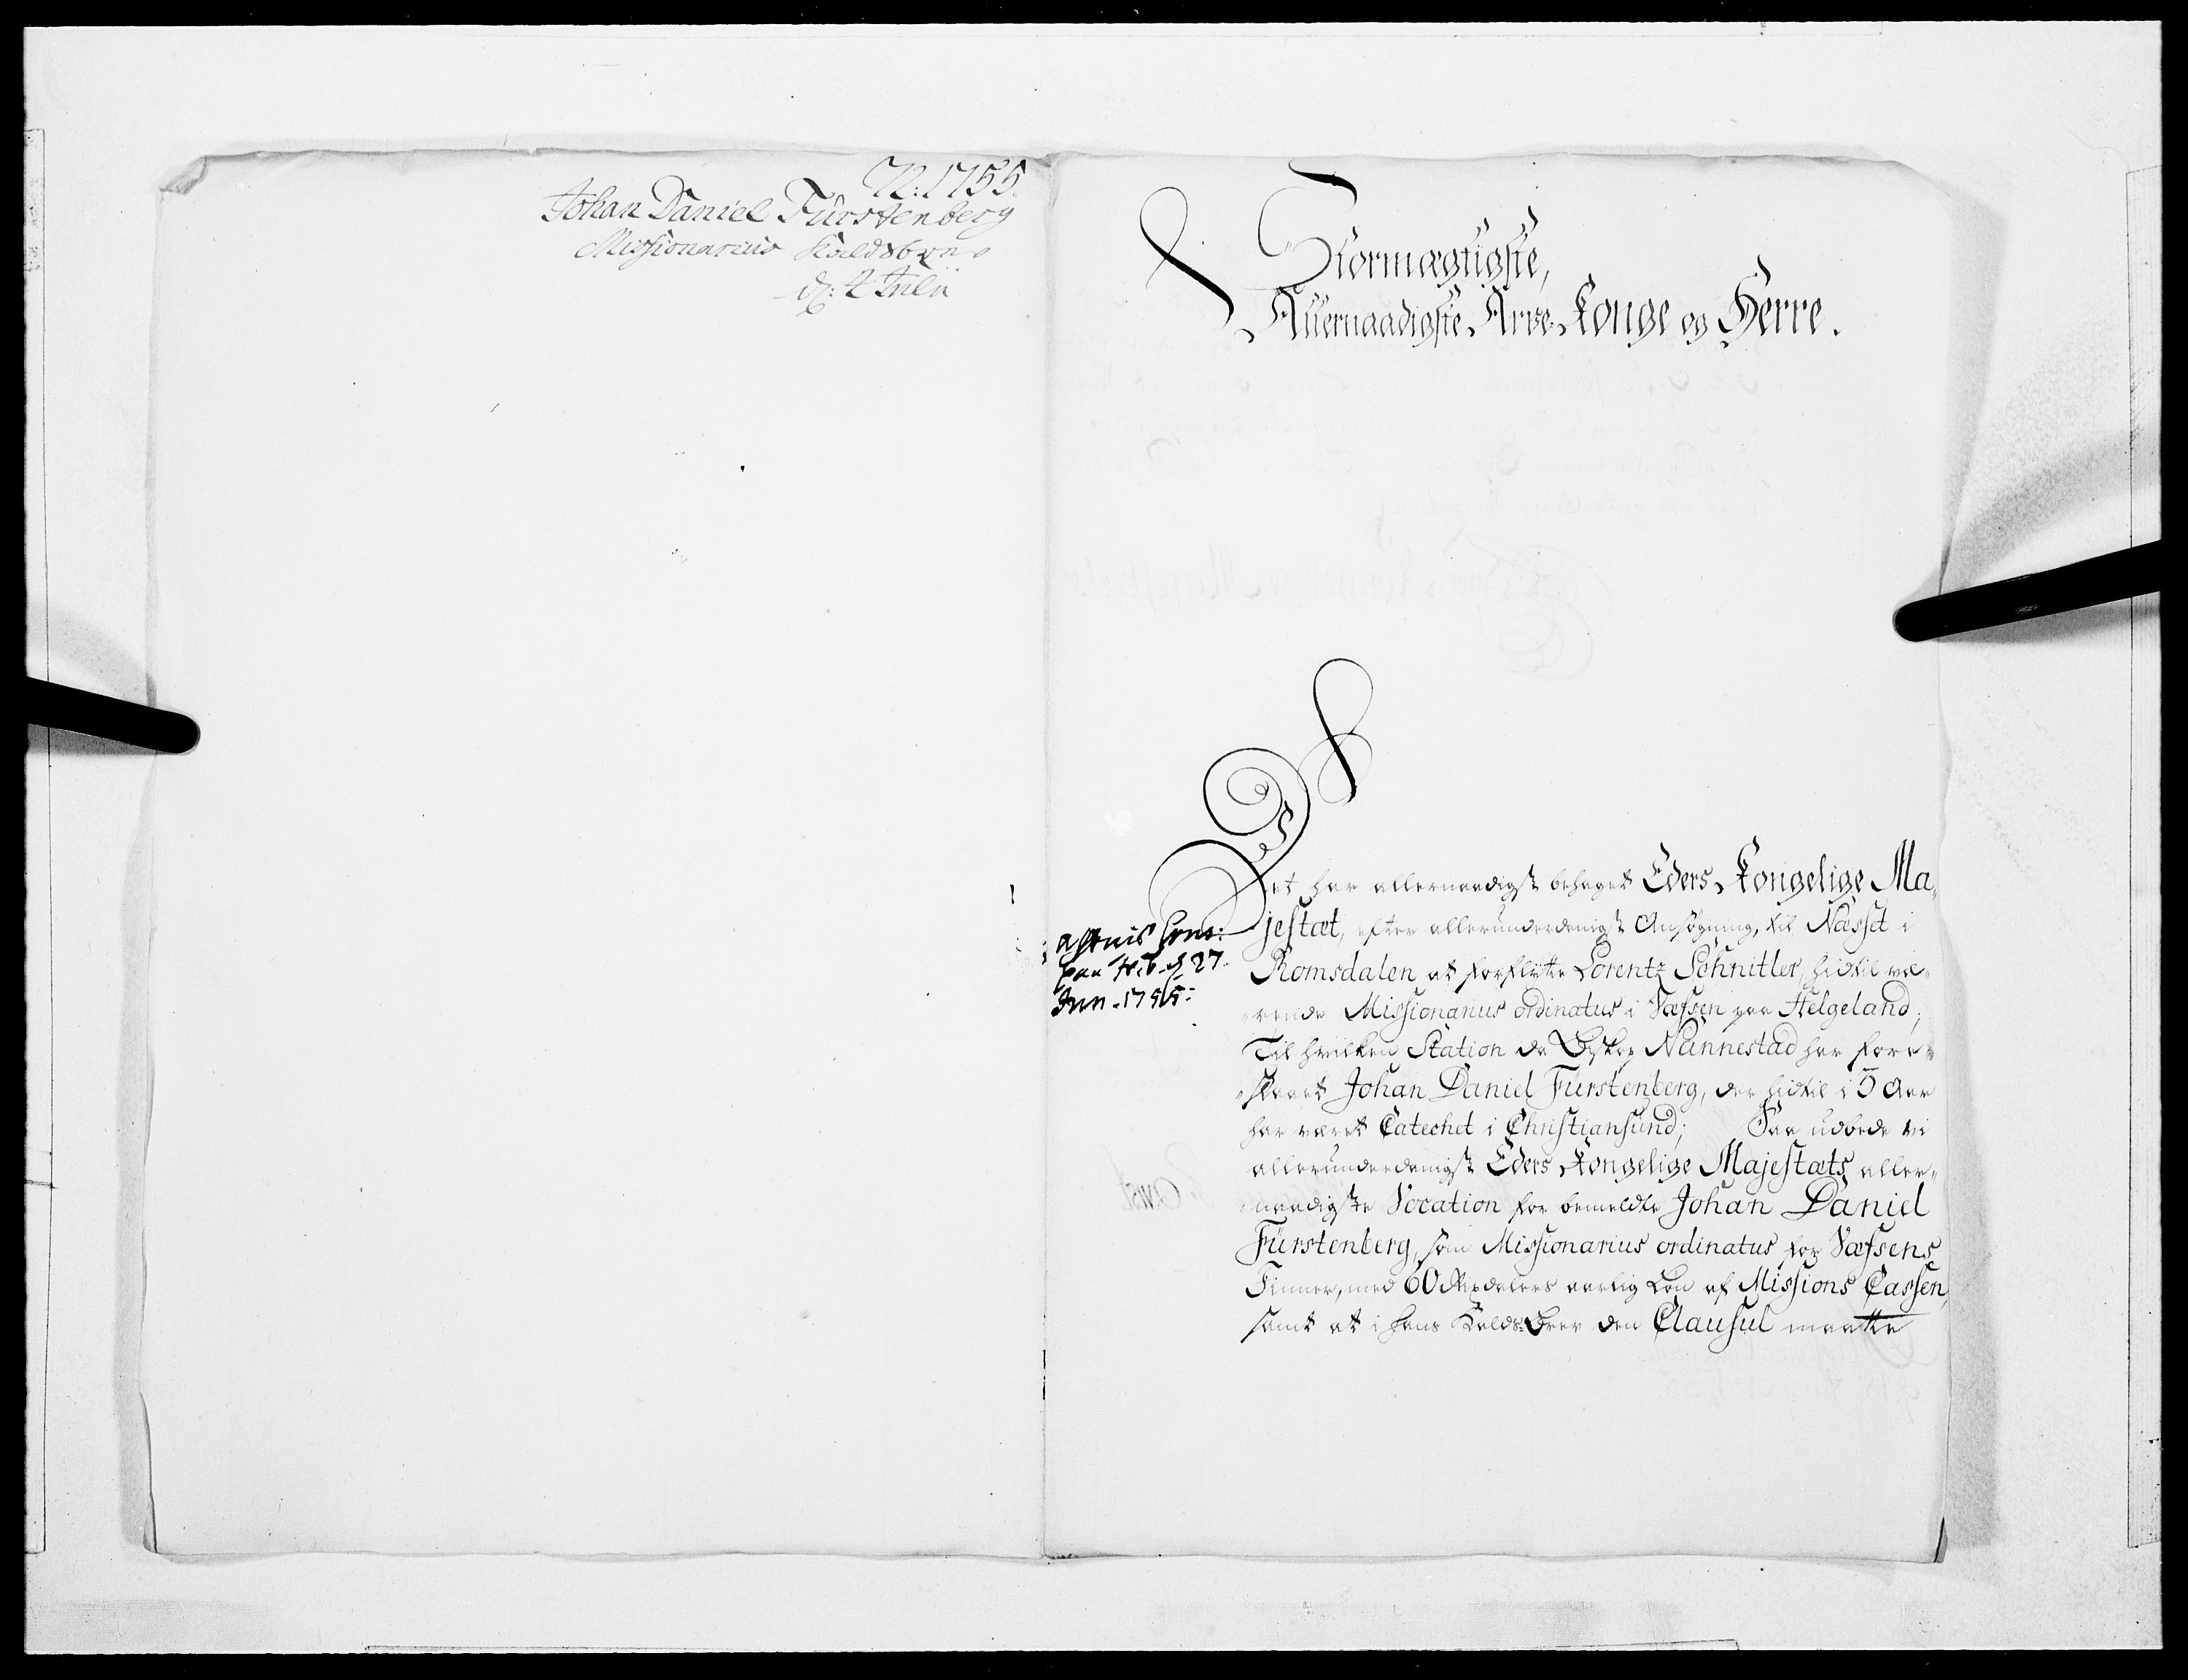 72: 1755.
Johan Daniel Fürstenberg
Missionarius Kaldsbrev
d: 4 Julii
Stormægtigste,
Allernaadigste Arve-Konge og Herre.
Det har allernaadigst behaget Eders Kongelige Ma-
jestæt, efter allerunderdanigst Ansøgning, til Næsset i
Romsdalen at forflytte Lorentz Schnitler, hidtil væ-
rende Missionarius ordinatus i Væfsen paa Helgeland;
Til hvilken Station da Biskop Nannestad har fore-
slaaet Johan Daniel Fürstenberg, der hidtil i 5 Aar
har været Catechet i Christiansund; Saa udbede vi
allerunderdanigst Eders Kongelige Majestæts aller-
naadigste Vocation for bemeldte Johan Daniel
Fürstenberg, som Missionarius ordinatus for Væfsens
Finner, med 60 Rixdalers aarlig Løn af Missions Cassen,
samt at i hans Kalds-Brev den Clausul maatte
paa d. 27.
Jun. 1755.